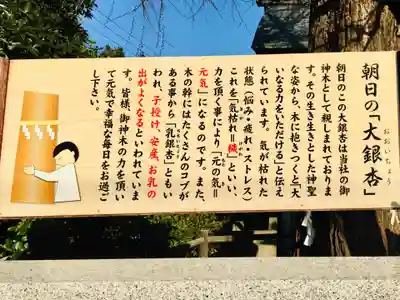 朝日の「大銀杏」
おおいちょう
朝日のこの大銀杏は当社の御
神木として親しまれておりま
す。その生き生きとした神聖
な姿から、木に抱きつくと『大
いなる力をいただける』と伝え
られています。気が枯れた
状態（悩み・疲れ・ストレス）
これを「気枯れ＝穢」といい、
力を頂く事により「元の気＝
元気」になるのです。また、
木の幹にはたくさんのコブが
ある事から「乳銀杏」ともい
われ、子授け、安産、お乳の
出がよくなるといわれていま
す。皆様、御神木の力を頂い
て元気で幸福な毎日をお過ご
し下さい。